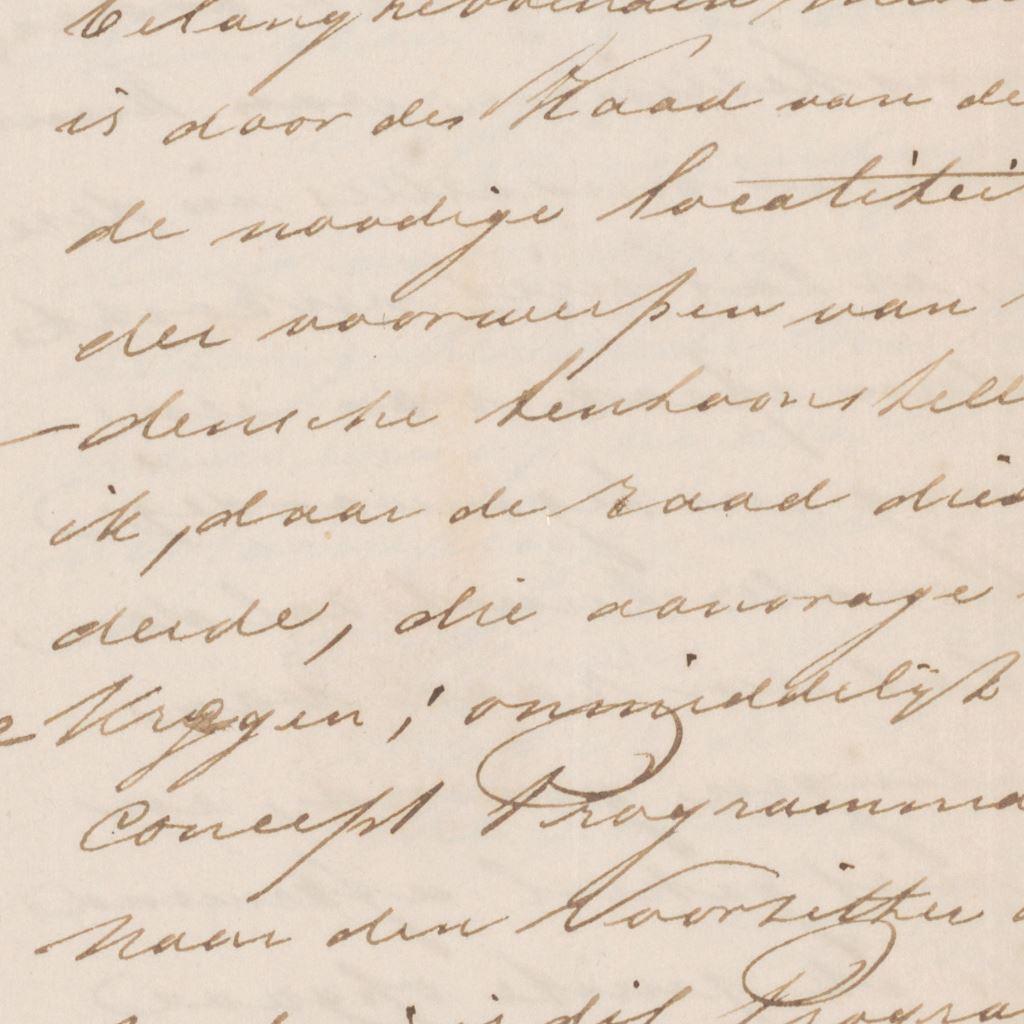 belanghebbenden
is door den Raad van de
de noodige localitei
der voorwerpen van
densche tentoonstell
ik, daar de raad die
derde, die aanvrage
Kregen; onmiddelijk
Concept Programma
naar den Voorzitter
is dit Progra